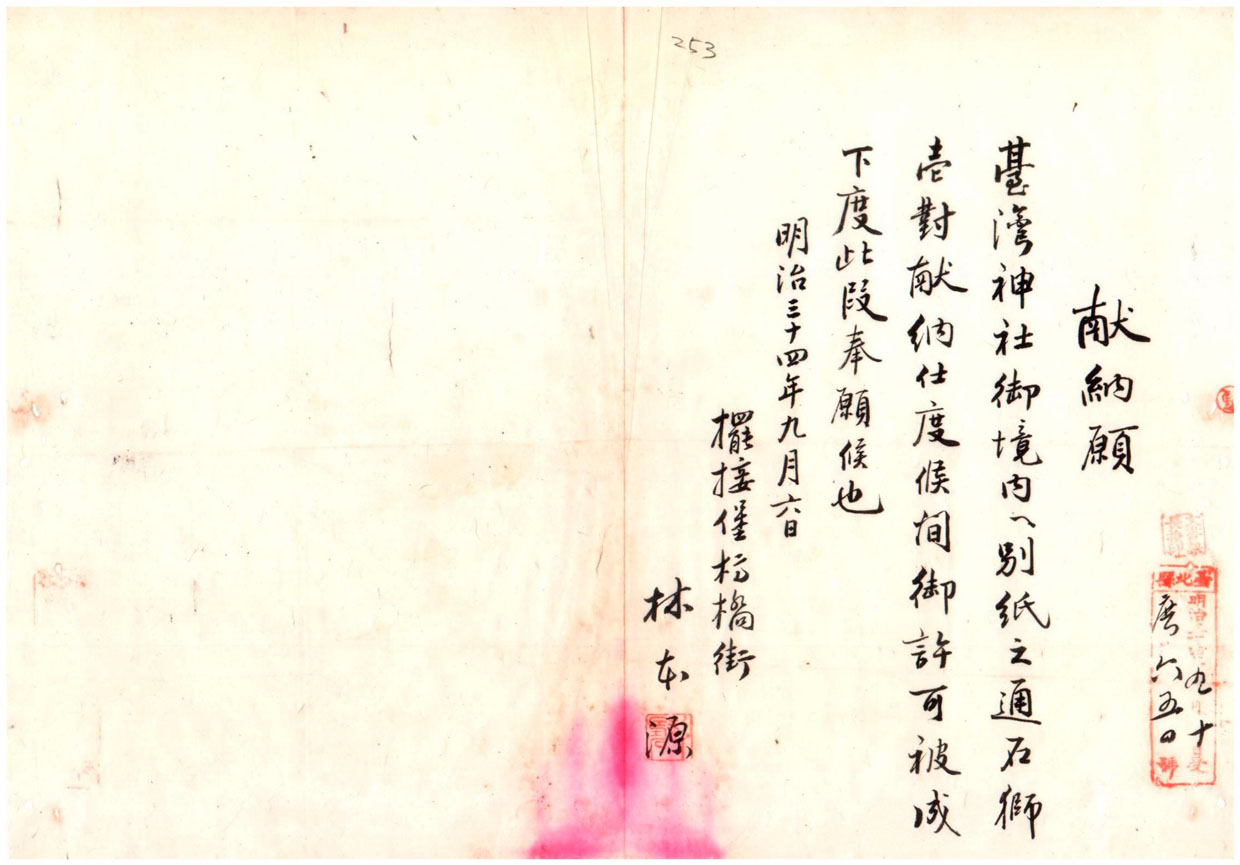 253
献納願
臺灣神社御境内ヘ別紙之通石獅
壱對献納仕度候間御許可被成
下度此段奉願候也
明治三十四年九月六日
擺接堡枋橋街
林本源
臺北縣
明治三十四年九月十
庶六五四號